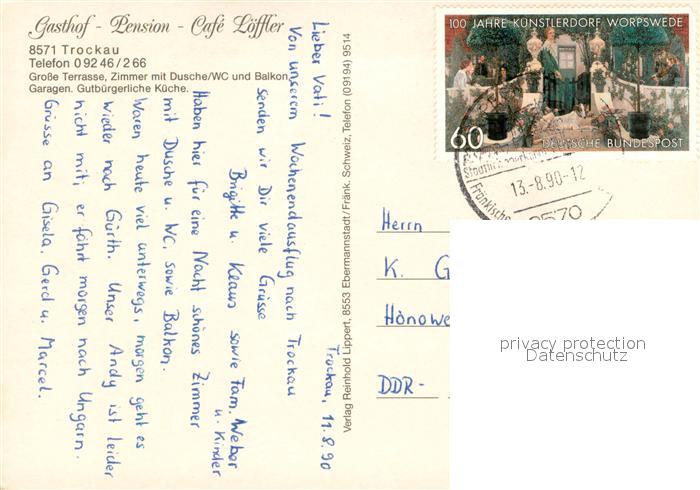 Gasthof - Pension - Café Löffler
8571 Trockau
Telefon 0 92 46 / 2 66
Große Terrasse, Zimmer mit Dusche/WC und Balkon,
Garagen. Gutbürgerliche Küche.
Trockau, 11.8.90
Lieber Vati!
Von unserem Wochenendausflug nach Trockau
senden wir Dir viele Grüsse
Brigitte u. Klaus sowie Fam. Weber
u. Kinder
Haben hier für eine Nacht schönes Zimmer
mit Dusche u. WC, sowie Balkon.
Waren heute viel unterwegs, morgen geht es
wieder nach Fürth. Unser Andy ist leider
nicht mit; er fährt morgen nach Ungarn.
Grüsse an Gisela, Gerd u. Marcel.
Verlag Reinhold Lippert, 8553 Ebermannstadt/Fränk. Schweiz, Telefon (09194) 9514
100 JAHRE KÜNSTLERDORF WORPSWEDE
60
DEUTSCHE BUNDESPOST
13.-8.90-12
Fränkische
8570
Herrn
K. G
Hönowe
DDR-
privacy protection
Datenschutz